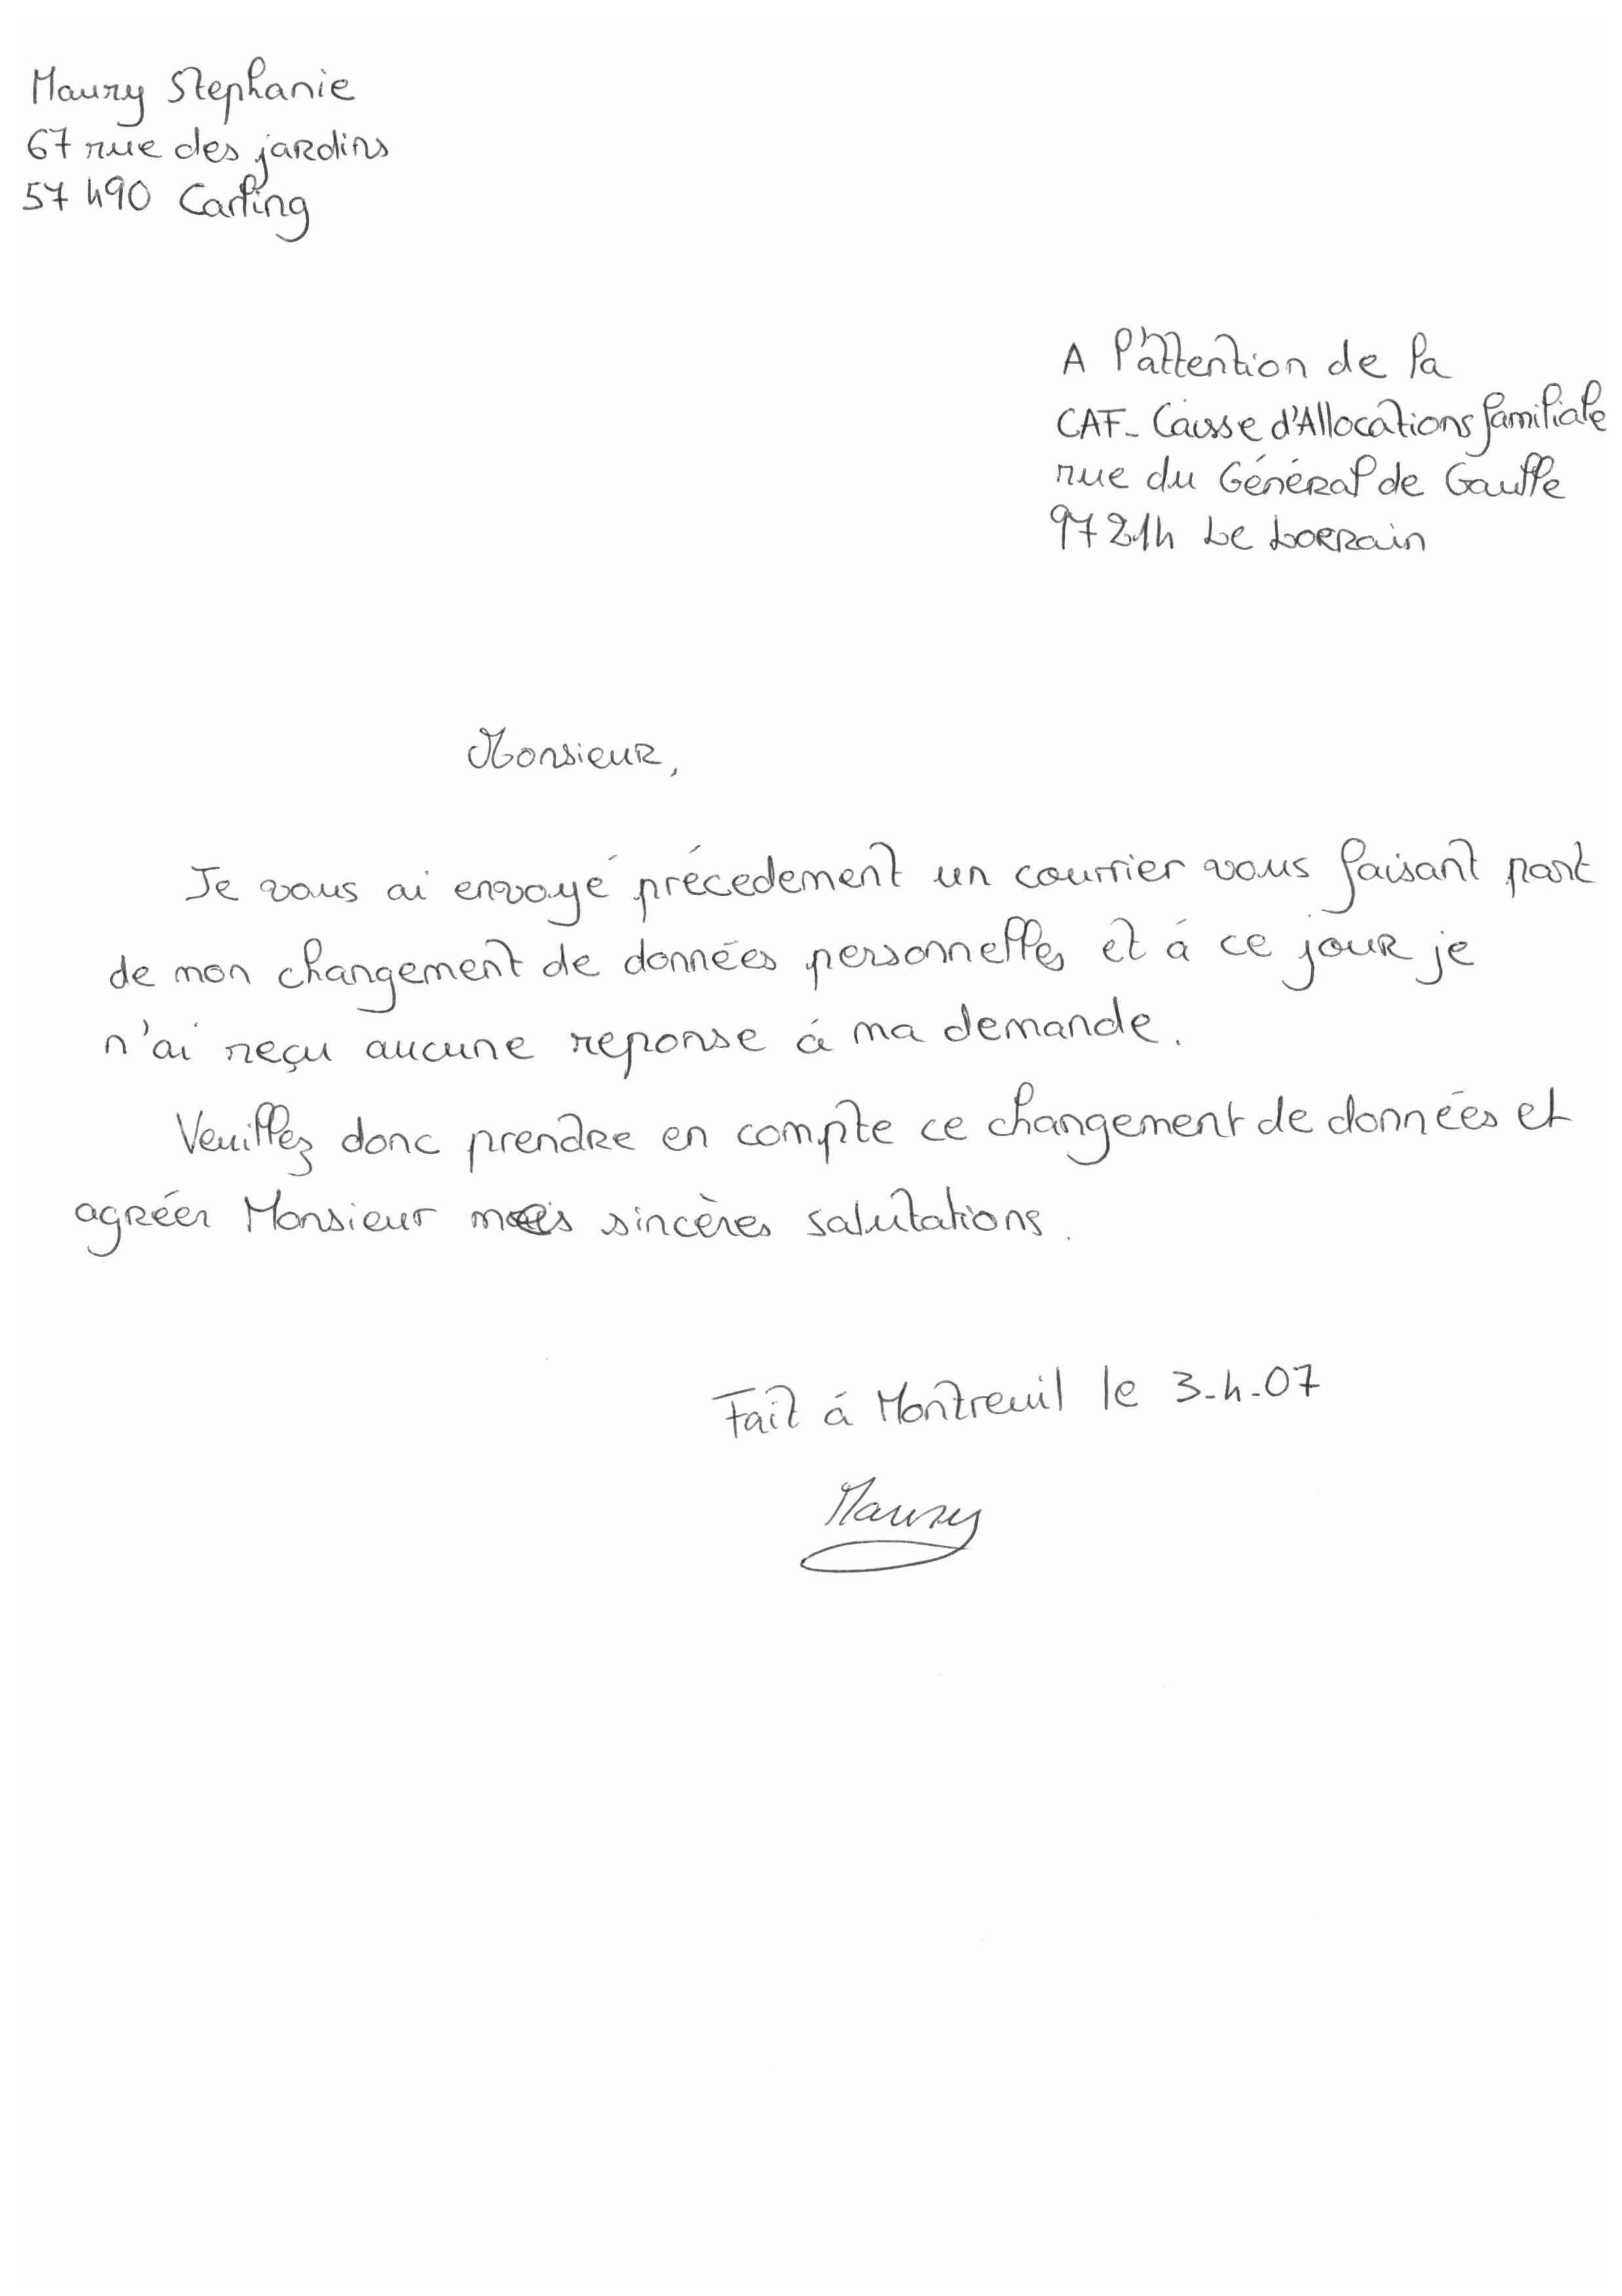 Maury Stephanie
67 rue des jardins
57 490 Carling
A l'attention de la
CAF_ Caisse d'Allocations familiale
rue du Général de Gaulle
97 214 Le Lorrain
Monsieur,
Je vous ai envoyé précedement un courrier vous faisant part
de mon changement de données personnelles et á ce jour je
n'ai reçu aucune reponse á ma demande.
Veuillez donc prendre en compte ce changement de données et
agréer Monsieur mes sincères salutations.
Fait á Montreuil le 3-4-07
Maury